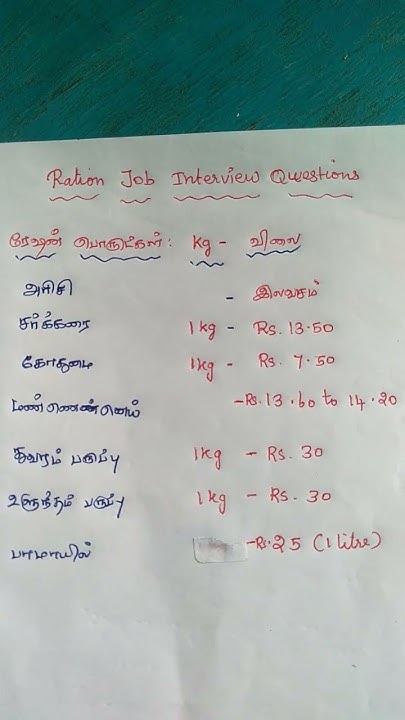 Ration Job Interview Questions
ரேஷன் பொருட்கள் : Kg - விலை
அரிசி - இலவசம்
சர்க்கரை 1 kg - Rs. 13.50
கோதுமை 1kg - Rs. 7.50
மண்ணெண்ணெய் -Rs.13.60 to 14.20
துவரம் பருப்பு 1kg - Rs. 30
உளுந்தம் பருப்பு 1kg - Rs. 30
பாமாயில் -Rs.25 (1 litre)